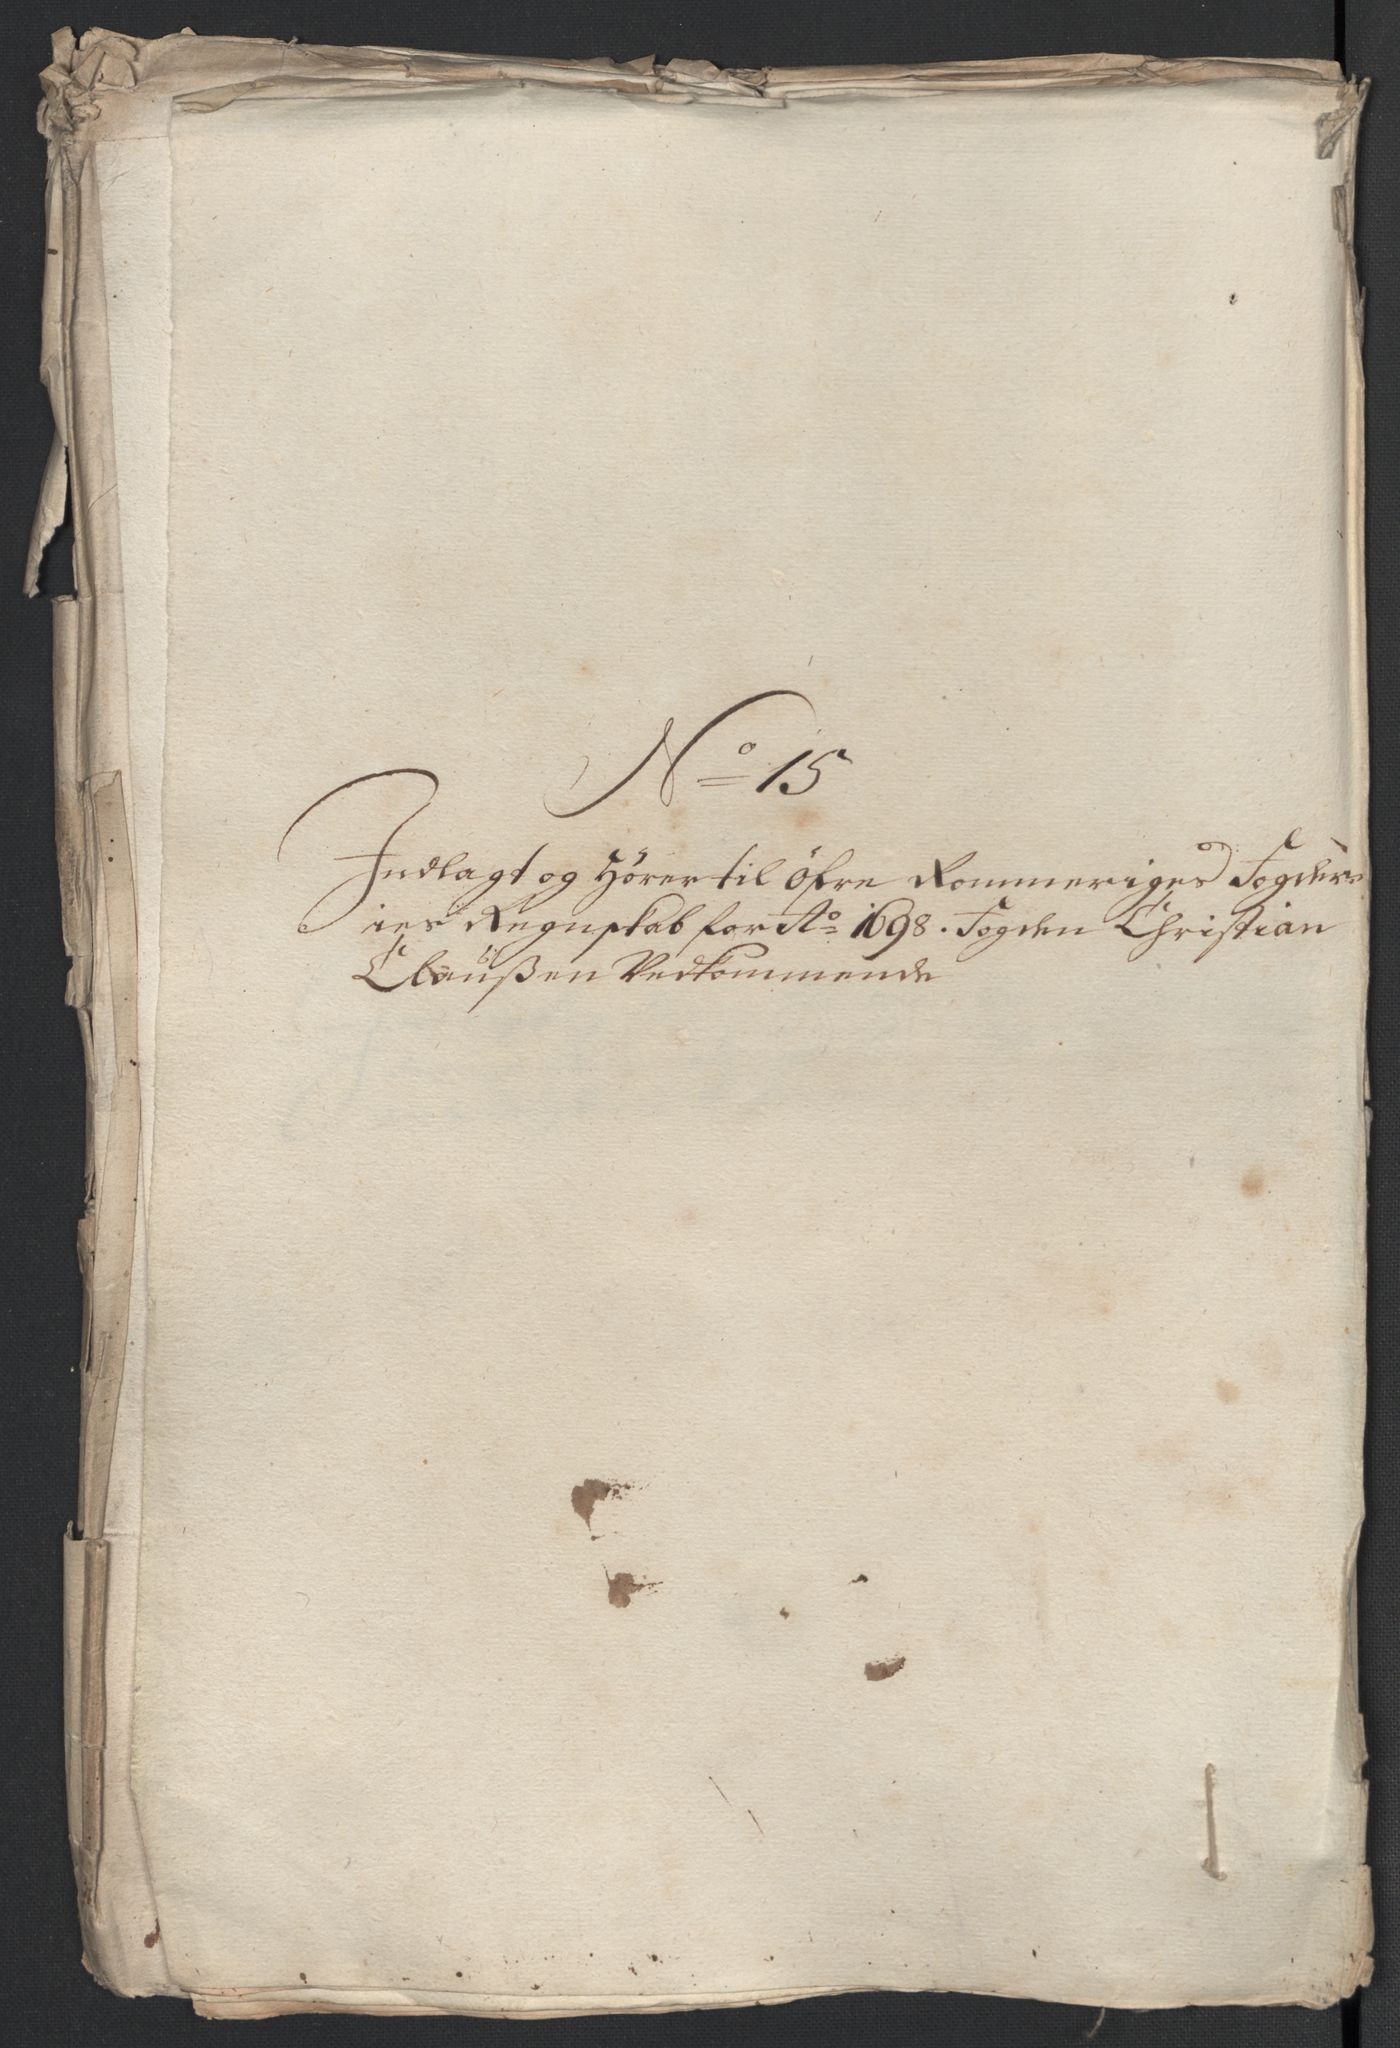 No 15
Indlagt og Hörer til Öfre Rommeriges Fogderi
ies Regnskab for Ao 1698. Fogden Christian
Claußen Vedkommende